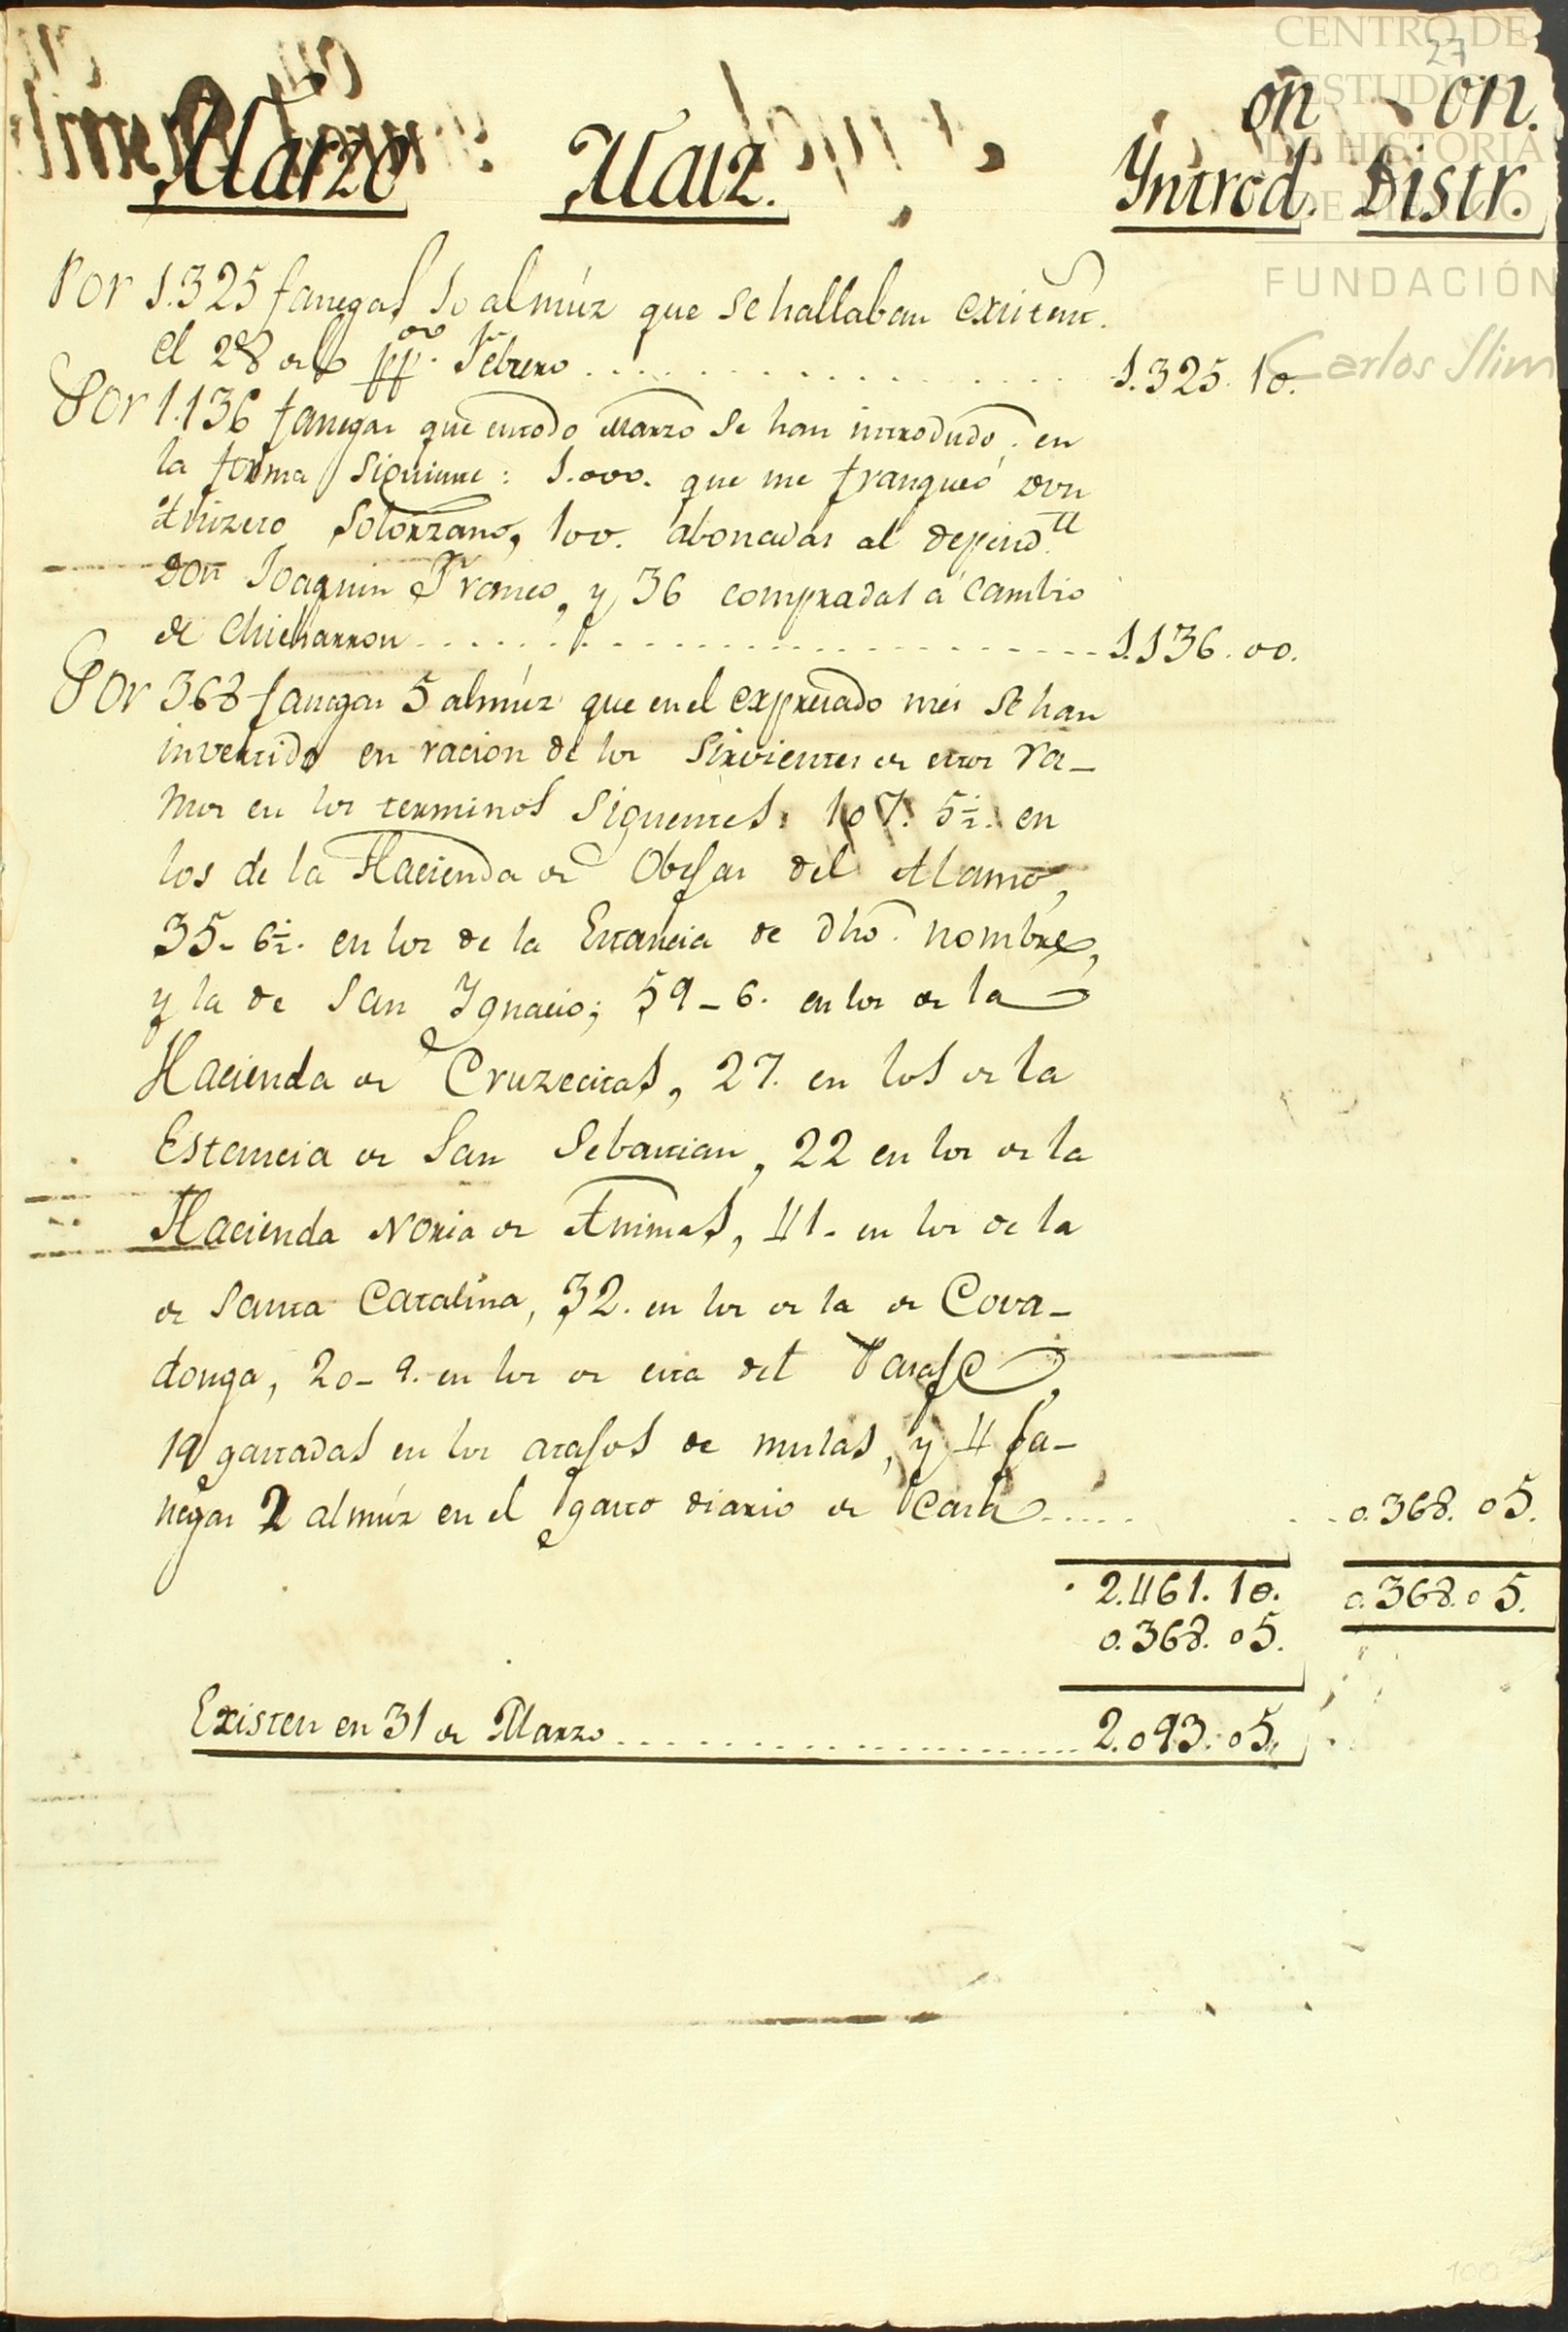 CENTRO DE
ESTUDIOS
DE HISTORIA
DE MÉXICO
FUNDACIÓN
Carlos Slim
27
Marzo Maiz. Introd.on Distr.on
Por 1.325 fanegas 10 almúz que se hallaban existent.
el 28 del pp.do Febrero . . . . . . . . . . 1.325. 10.
Por 1.136 fanegas que en todo Marzo se han introducido en
la forma siguiente: 1.000. que me franqueó Don
Solorzano, 100. abonadas al depend.te
Don Joaquin Franco, y 36 compradas á cambio
de Chicharron . . . . . . . . . . 1.136. 00.
Por 368 fanegas 5 almúz que en el expresado mes se han
invertido en racion de los Sirvientes de estos ra-
mos en los terminos siguientes: 107. 5½. en
los de la Hacienda de Obejas del Alamo,
35- 6½. en los de la Estancia de dho. nombre,
y la de San Ygnacio; 59-6. en los de la
Hacienda de Cruzecitas, 27. en los de la
Estancia de San Sebastian, 22 en los de la
Hacienda Noria de Animas, 41. en los de la
de Santa Catalina, 32. en los de la de Cova-
donga, 20-9. en los de esta del
19 gastadas en los atajos de mulas, y 4 fa-
negas 2 almúz en el gasto diario de Casa . . . . . 0.368. 05.
2.461. 10. 0.368. 05.
0.368. 05.
Existen en 31 de Marzo . . . . . . . . . . 2.093. 05.
100